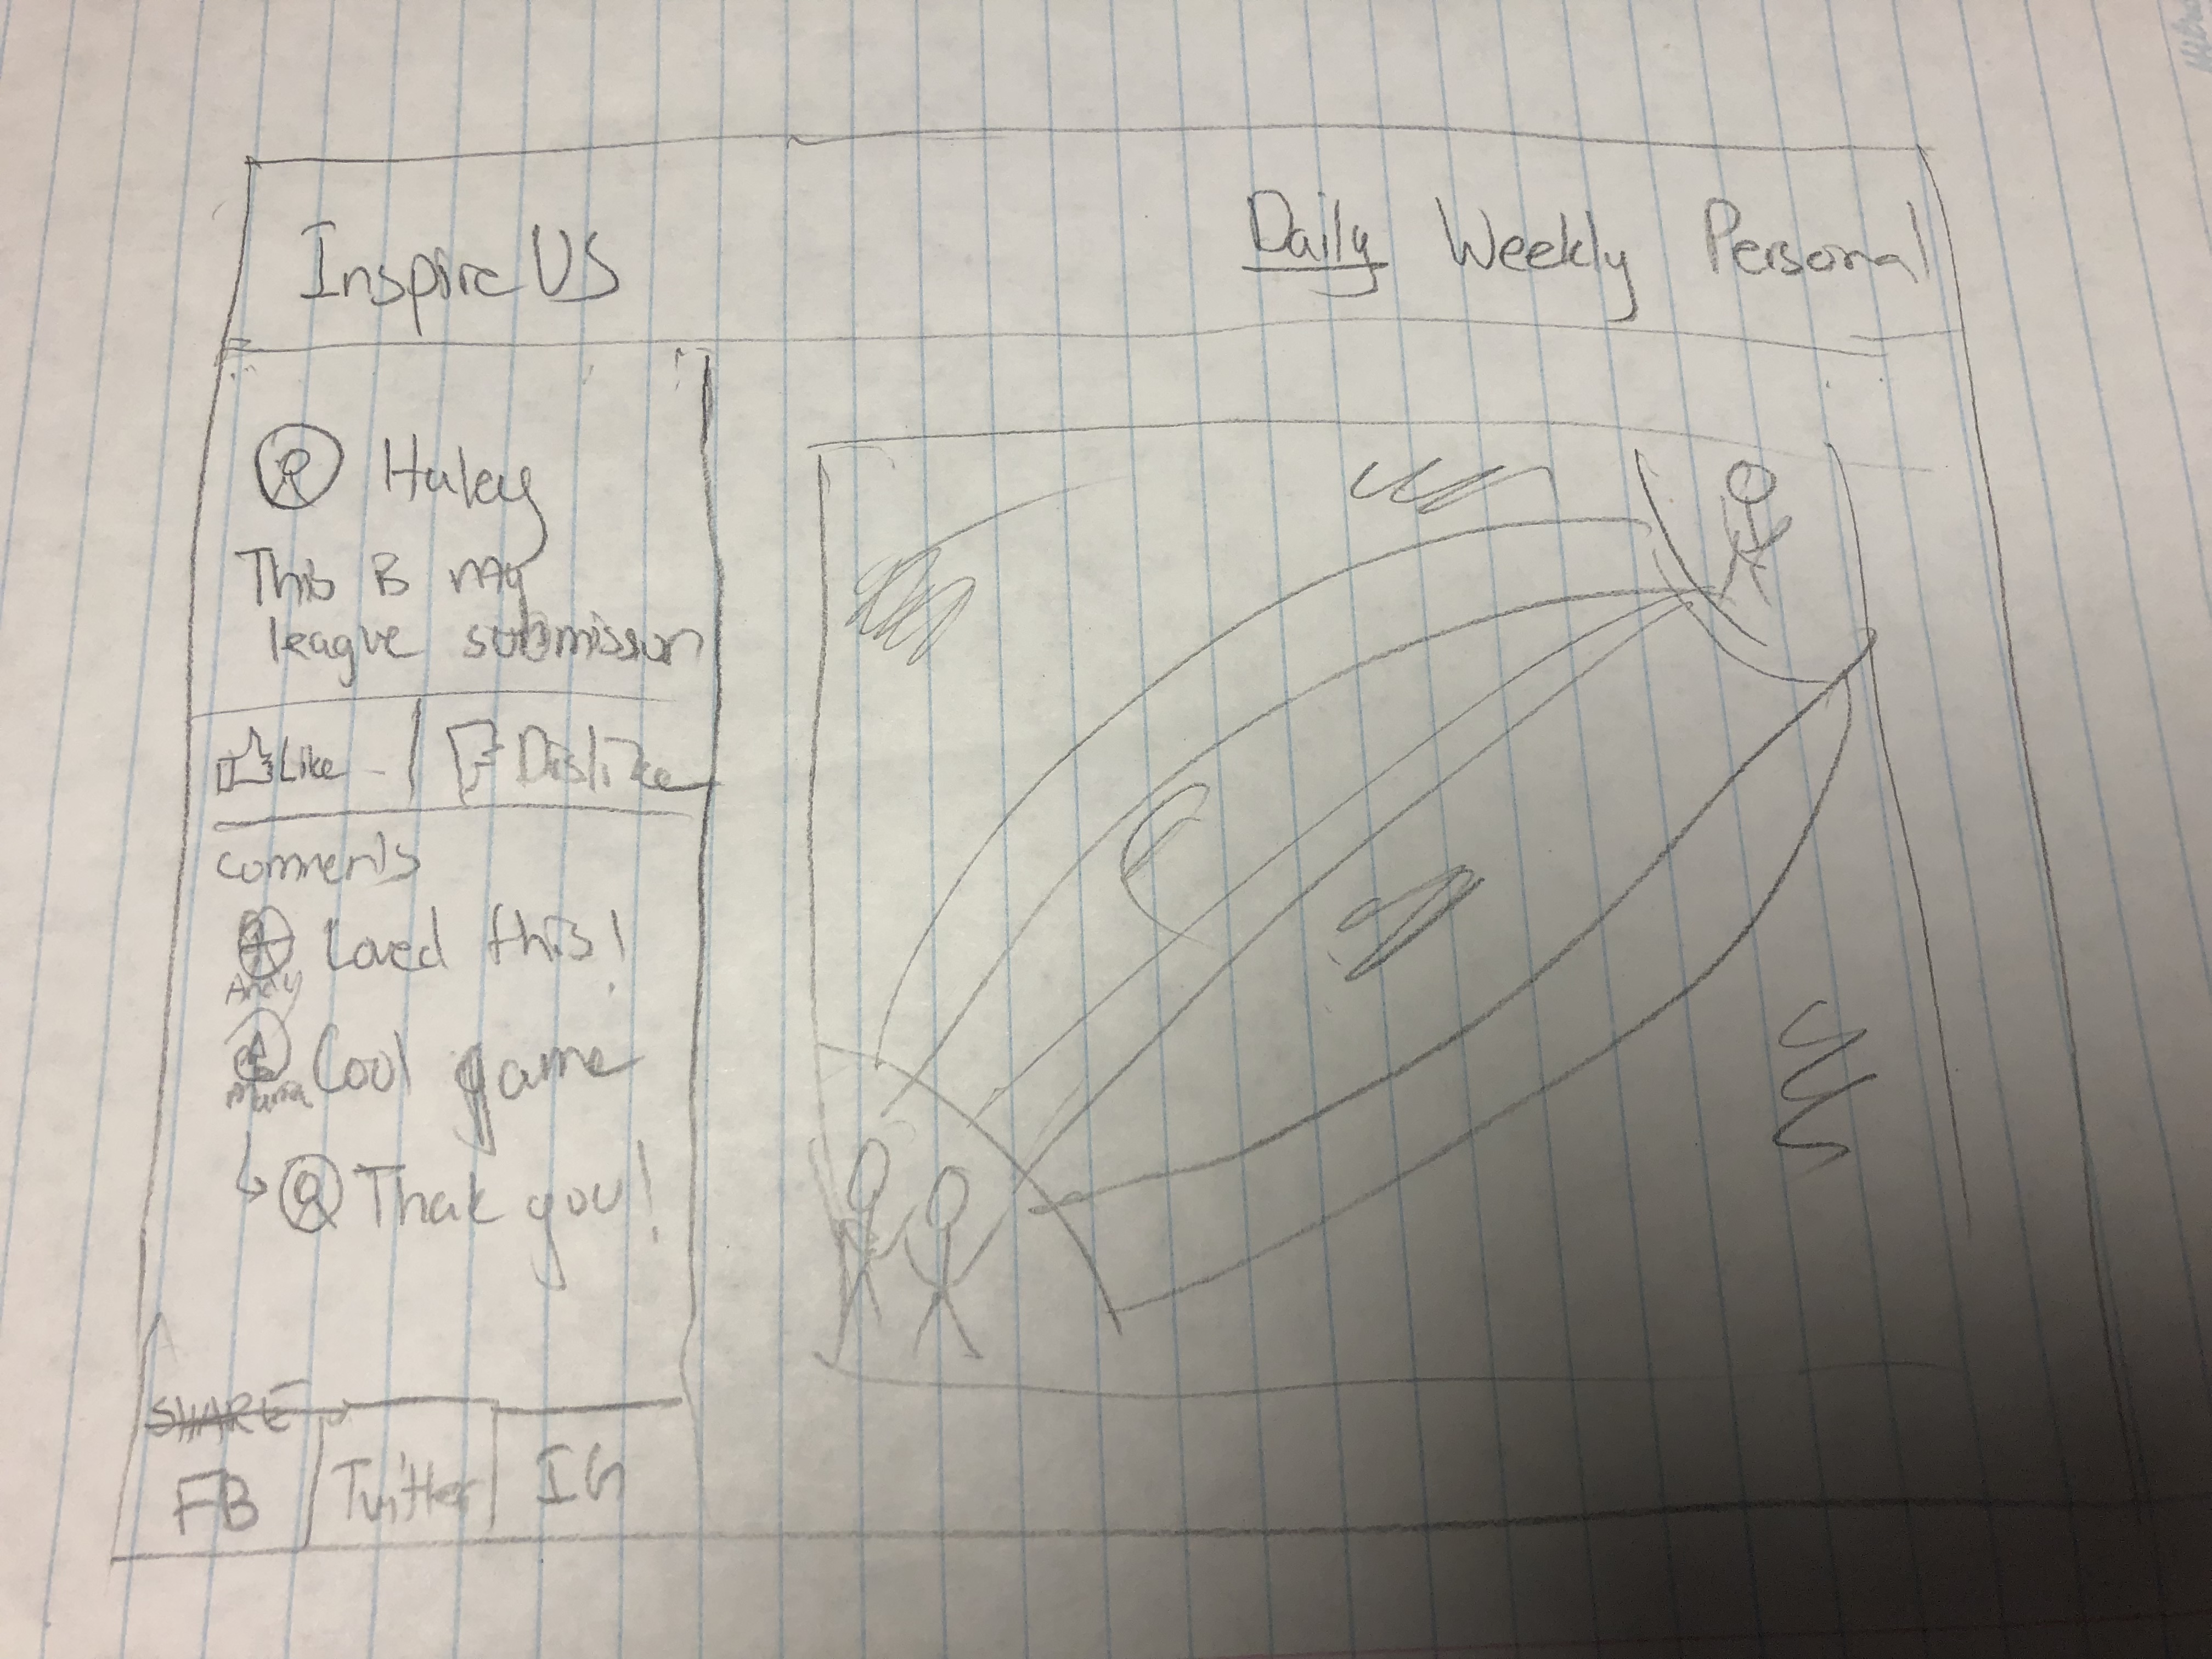 Inspire US
Daily Weekly Personal
Haley
This is my
league submission
Like
Dislike
comments
Loved this!
Andy
Cool game
Maria
Thak you!
SHARE
FB
Twitter
IG